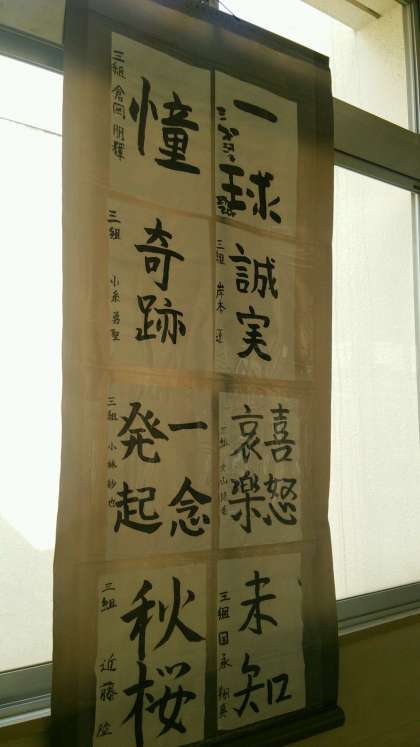 一球
誠実
三組 岸本
喜怒
哀楽
未知
三組 国永 翔英
憧
三組 倉岡 朋輝
奇跡
三組 小糸 勇聖
一念
発起
三組 小林 紗也
秋桜
三組 近藤 陸